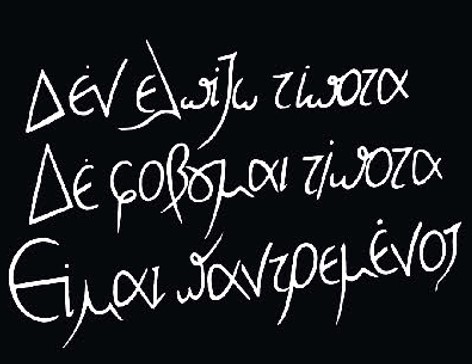 Δέν ελπίζω τίποτα
Δέ φοβȣμαι τίποτα
Είμαι παντρεμένος